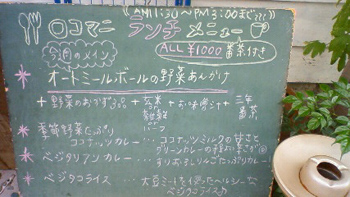 ((AM11:30〜PM3:00まで))
ロコマニ ランチメニュー
ALL ¥1000 番茶付き
今日のメイン
オートミールボールの野菜あんかけ
+ 野菜のおかず3品 + 玄米 + お味噌汁 + 三年番茶
季節野菜たっぷり
ココナッツカレー … ココナッツミルクの甘さと
グリーンカレーの
ベジタリアンカレー … すりおろしりんごたっぷりカレー!
ベジタコライス … 大豆ミートを使ったヘルシーな
ベジタコライス